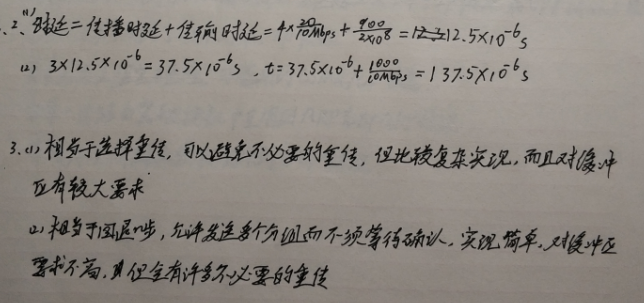 2、(1) 时延=传播时延+传输时延=4×20/10Mbps+900/2×10^8=12.5×10^-6 s
(2) 3×12.5×10^-6=37.5×10^-6 s，t=37.5×10^-6+1000/10Mbps=137.5×10^-6 s
3.(1) 相当于选择重传，可以避免不必要的重传，但比较复杂实现，而且对缓冲
区有较大要求
(2) 相当于回退n步，允许发送多个分组而不须等待确认，实现简单，对缓冲区
要求不高，但会有许多不必要的重传